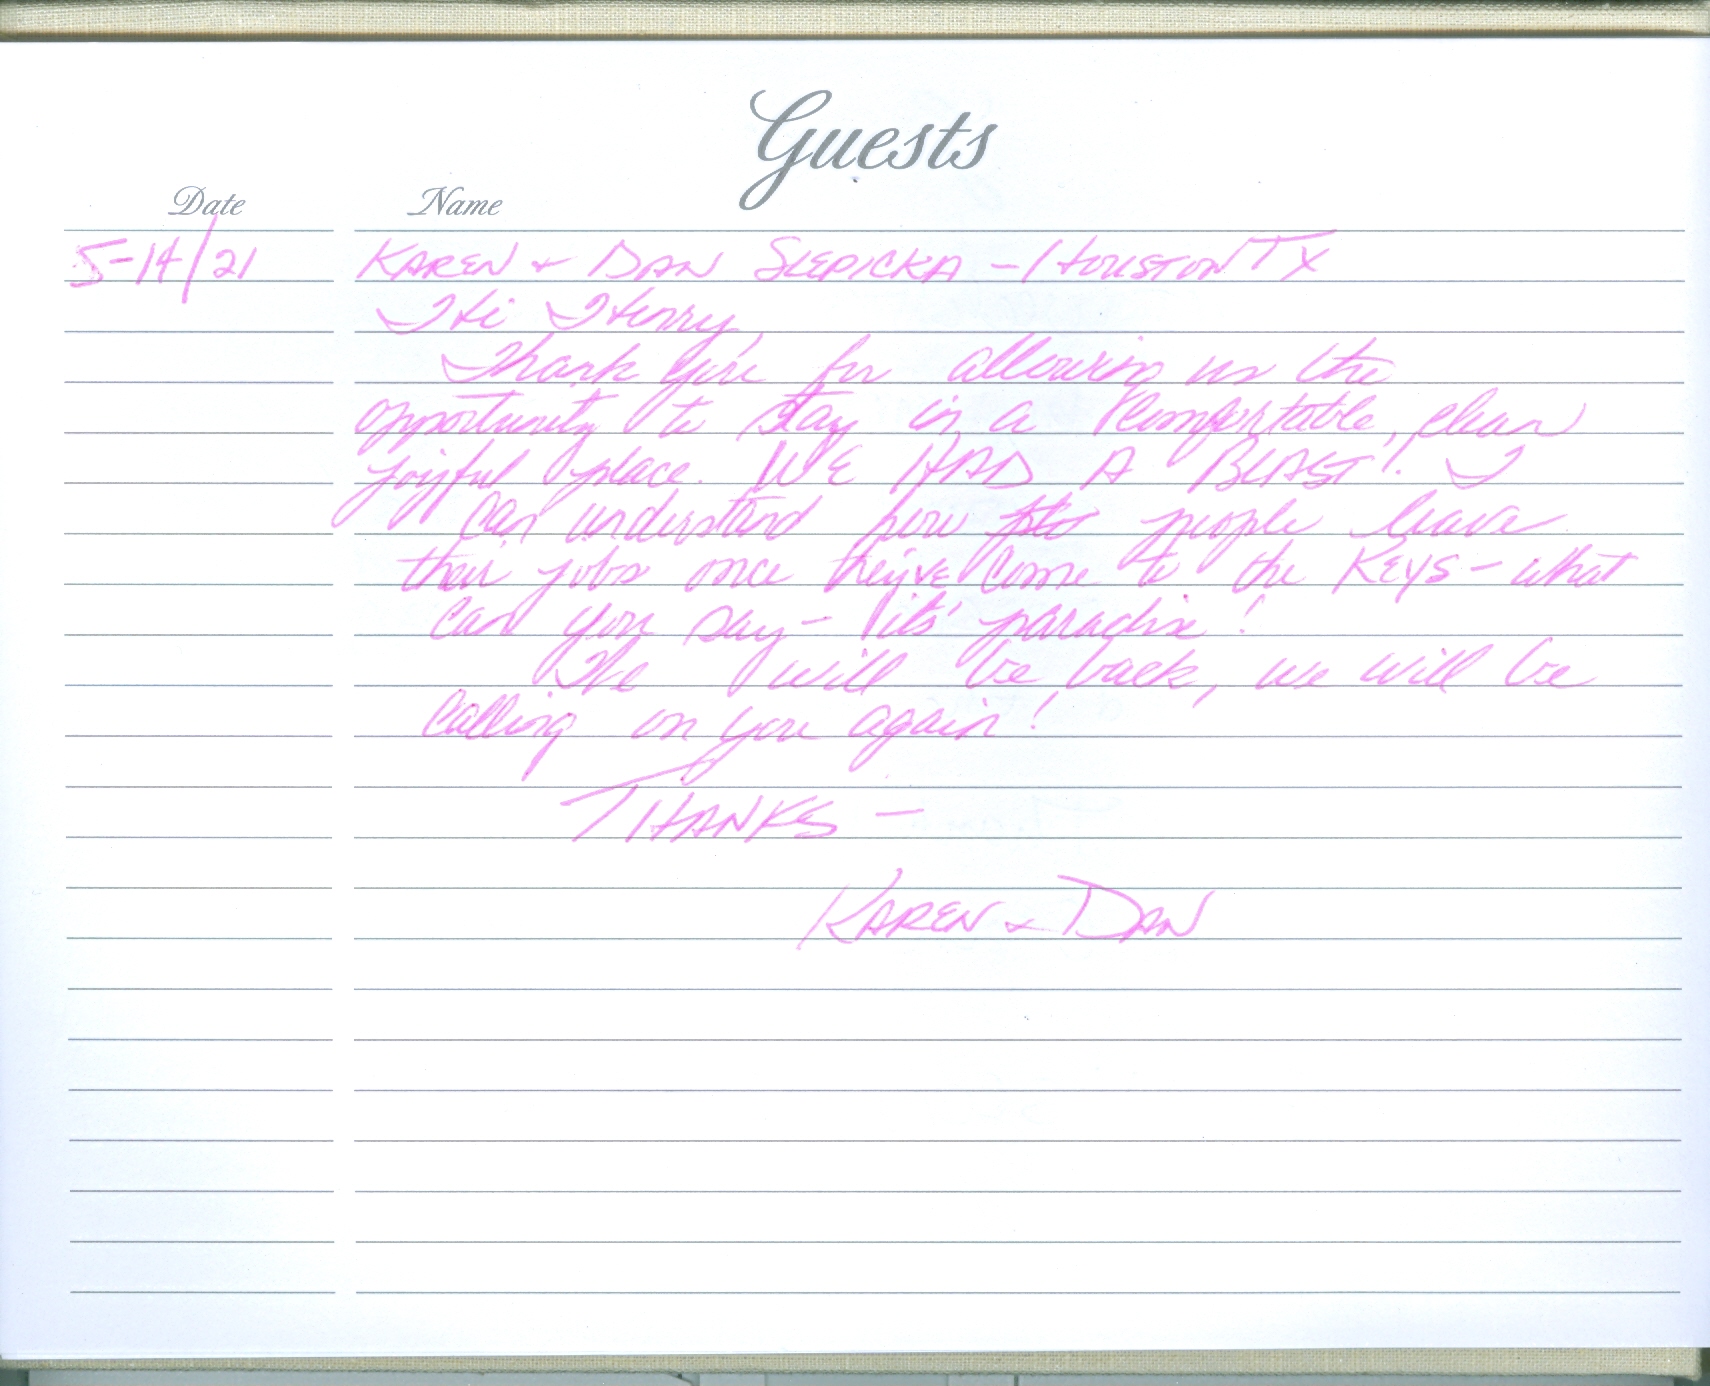 Guests
Date Name
5-14/21 KAREN + DAN SLEPICKA - HOUSTON TX
Hi Henry,
Thank you for allowing us the
opportunity to stay in a comfortable, clean
joyful place. WE HAD A BLAST! I
can understand how people leave
their jobs once they've come to the KEYS - what
can you say - it's paradise!
We will be back, we will be
calling on you again!
THANKS -
KAREN + DAN